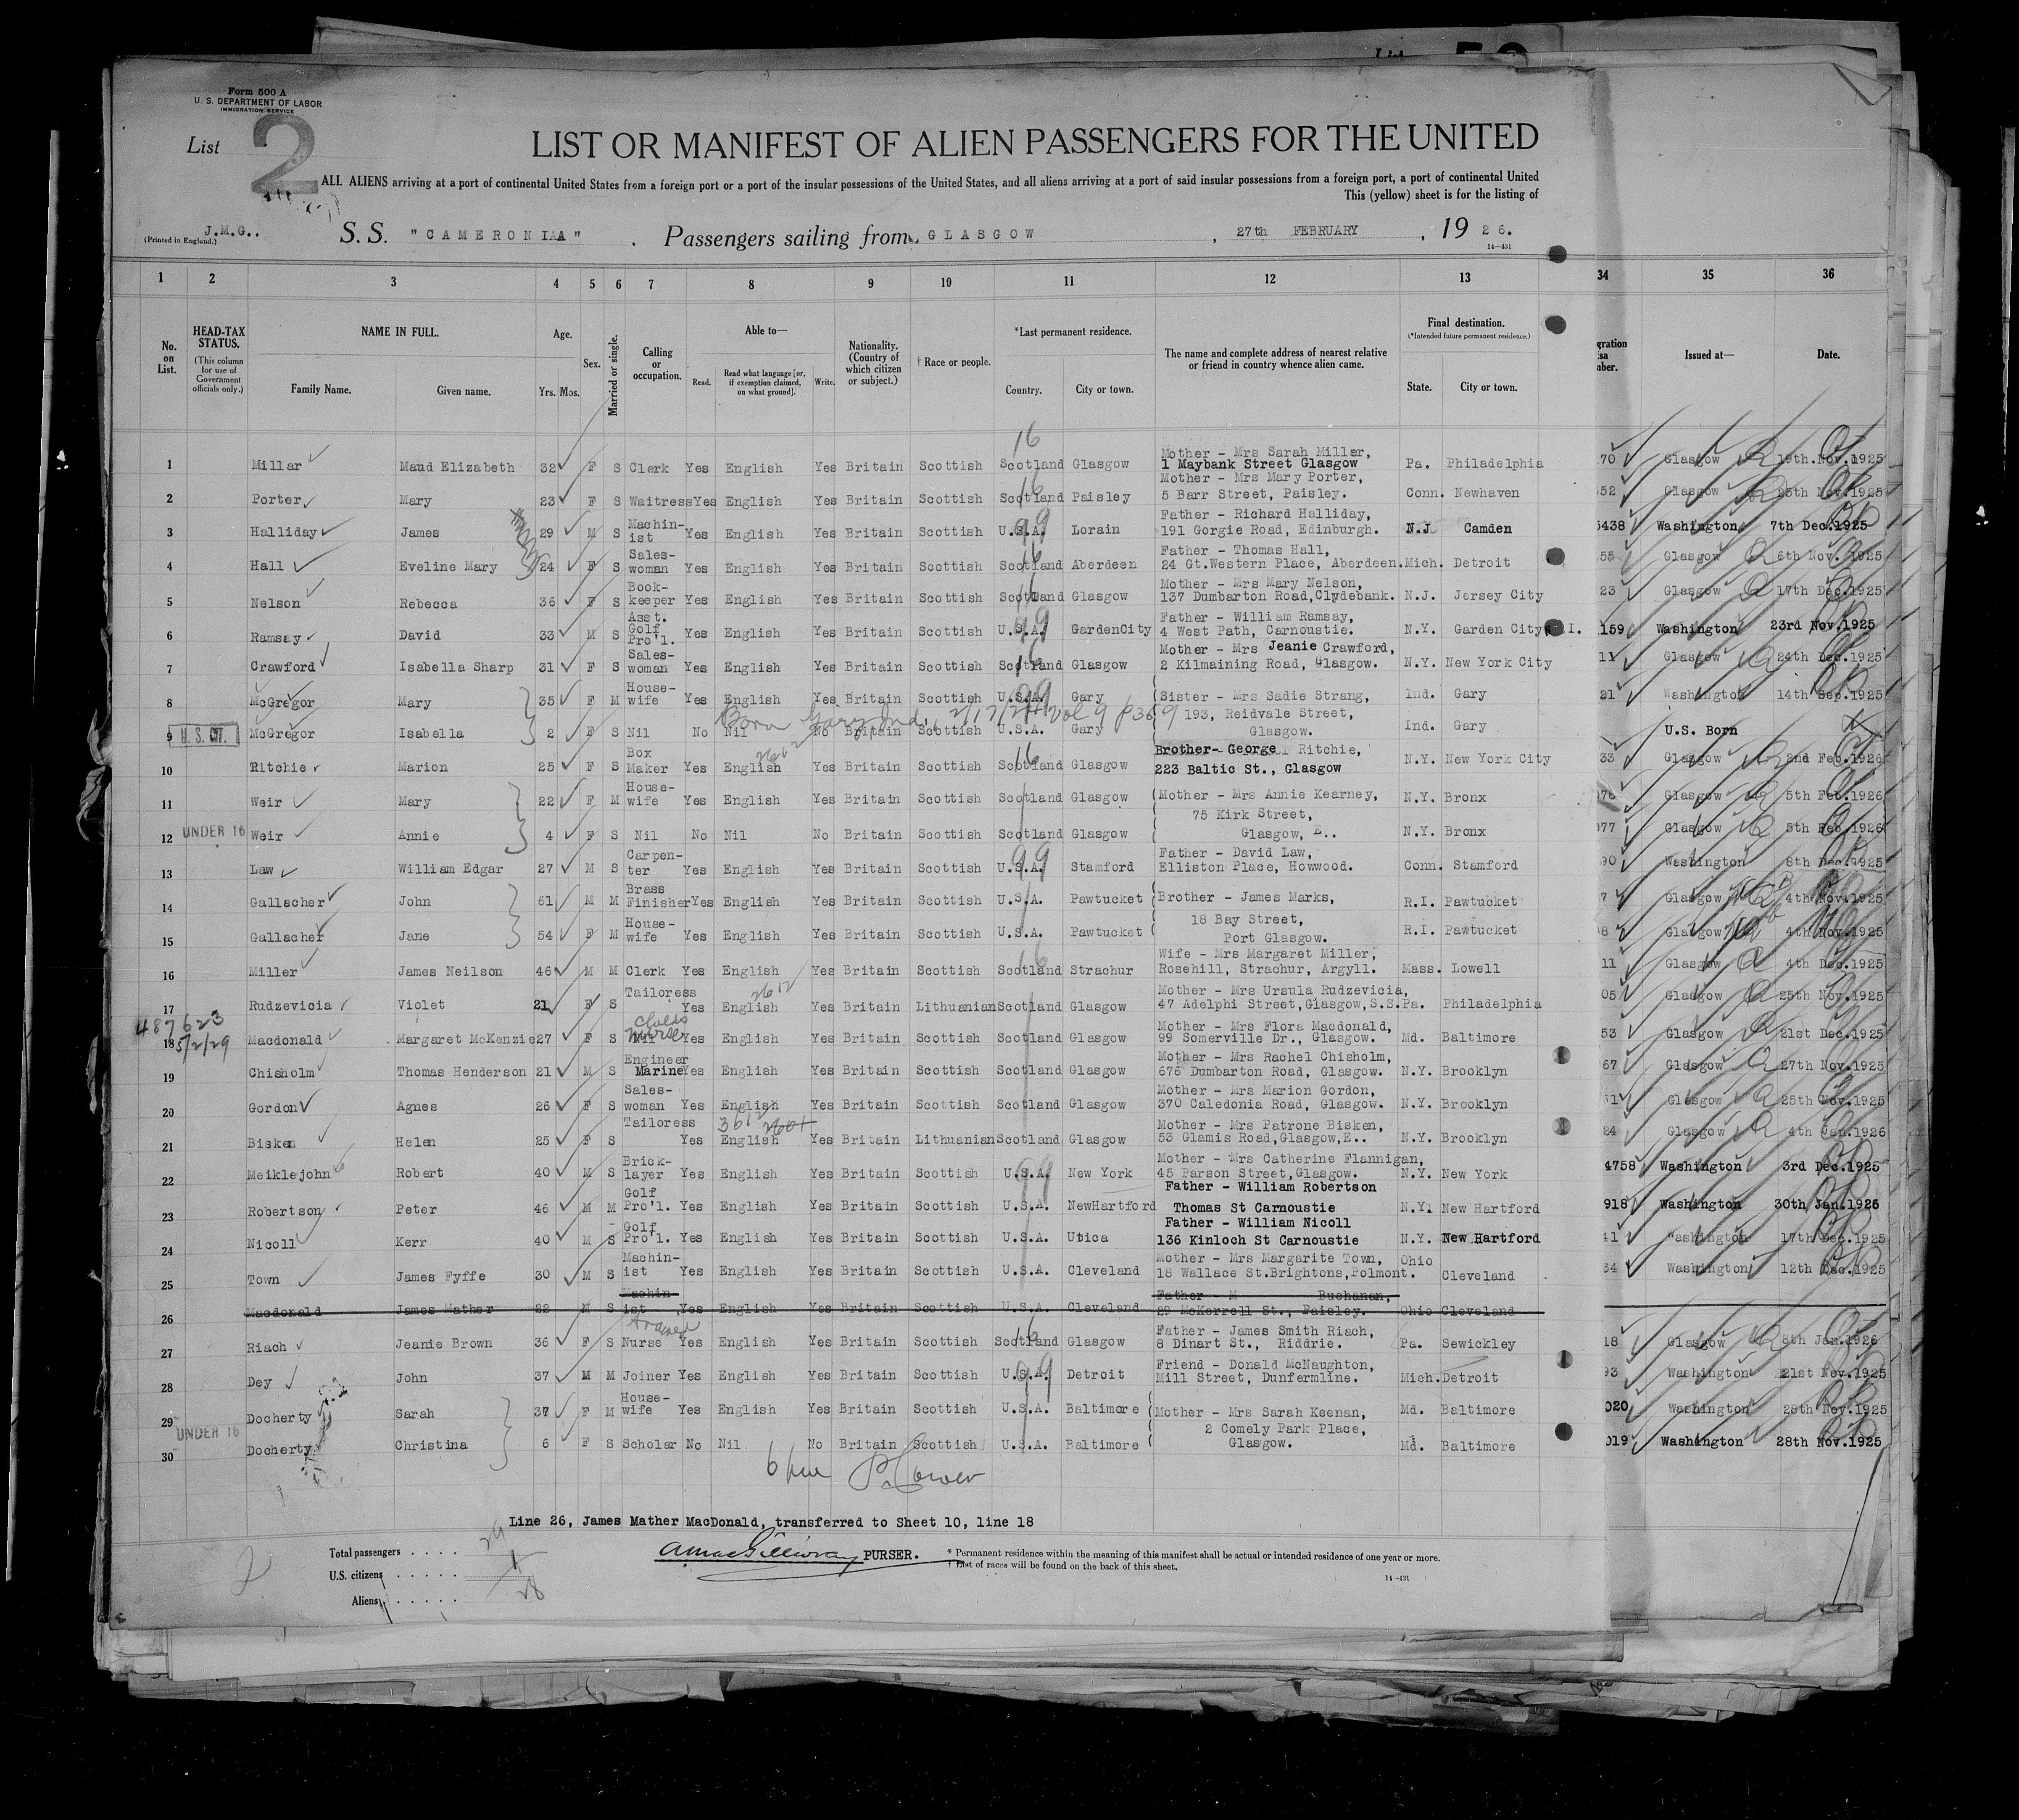 Form 500 A
U. S. DEPARTMENT OF LABOR
IMMIGRATION SERVICE
List 2
LIST OR MANIFEST OF ALIEN PASSENGERS FOR THE UNITED
ALL ALIENS arriving at a port of continental United States from a foreign port or a port of the insular possessions of the United States, and all aliens arriving at a port of said insular possessions from a foreign port, a port of continental United
This (yellow) sheet is for the listing of
J.M.G..
(Printed in England.)
S. S. "CAMERONIA" . Passengers sailing from GLASGOW , 27th FEBRUARY , 19 26.
14—431
1 2 3 4 5 6 7 8 9 10 11 12 13 34 35 36
No. on List.
HEAD-TAX STATUS.
(This column for use of Government officials only.)
NAME IN FULL.
Family Name. Given name.
Age.
Yrs. Mos.
Sex.
Married or single.
Calling or occupation.
Able to—
Read. Read what language [or, if exemption claimed, on what ground]. Write.
Nationality. (Country of which citizen or subject.)
† Race or people.
*Last permanent residence.
Country. City or town.
The name and complete address of nearest relative or friend in country whence alien came.
Final destination.
(*Intended future permanent residence.)
State. City or town.
Issued at— Date.
1 Millar Maud Elizabeth 32 F S Clerk Yes English Yes Britain Scottish Scotland Glasgow Mother - Mrs Sarah Miller, 1 Maybank Street Glasgow Pa. Philadelphia 170 Glasgow 19th.Nov.1925
2 Porter Mary 23 F S Waitress Yes English Yes Britain Scottish Scotland Paisley Mother - Mrs Mary Porter, 5 Barr Street, Paisley. Conn. Newhaven 552 Glasgow 25th Nov.1925
3 Halliday James 29 M S Machin-ist Yes English Yes Britain Scottish U.S.A. Lorain Father - Richard Halliday, 191 Gorgie Road, Edinburgh. N.J. Camden 6438 Washington 7th Dec.1925
4 Hall Eveline Mary 24 F S Sales-woman Yes English Yes Britain Scottish Scotland Aberdeen Father - Thomas Hall, 24 Gt.Western Place, Aberdeen. Mich. Detroit 55 Glasgow 6th Nov. 1925
5 Nelson Rebecca 36 F S Book-keeper Yes English Yes Britain Scottish Scotland Glasgow Mother - Mrs Mary Nelson, 137 Dumbarton Road,Clydebank. N.J. Jersey City 23 Glasgow 17th Dec.1925
6 Ramsay David 33 M S Asst. Golf Pro'l. Yes English Yes Britain Scottish U.S.A. GardenCity Father - William Ramsay, 4 West Path, Carnoustie. N.Y. Garden City, I. 159 Washington 23rd Nov.1925
7 Crawford Isabella Sharp 31 F S Sales-woman Yes English Yes Britain Scottish Scotland Glasgow Mother - Mrs Jeanie Crawford, 2 Kilmaining Road, Glasgow. N.Y. New York City 11 Glasgow 24th Dec.1925
8 McGregor Mary 35 F M House-wife Yes English Yes Britain Scottish U.S.A. Gary Sister - Mrs Sadie Strang, Ind. Gary 21 Washington 14th Sep.1925
Born Gary Ind. 2/12/24 Vol 9 p369
9 U. S. CIT. McGregor Isabella 2 F S Nil No Nil No Britain Scottish U.S.A. Gary 193, Reidvale Street, Glasgow. Ind. Gary U.S. Born
10 Ritchie Marion 25 F S Box Maker Yes English Yes Britain Scottish Scotland Glasgow Brother- George Ritchie, 223 Baltic St., Glasgow N.Y. New York City 33 Glasgow 2nd Feb.1926
11 Weir Mary 22 F M House-wife Yes English Yes Britain Scottish Scotland Glasgow Mother - Mrs Annie Kearney, N.Y. Bronx 076 Glasgow 5th Feb.1926
12 UNDER 16 Weir Annie 4 F S Nil No Nil No Britain Scottish Scotland Glasgow 75 Kirk Street, Glasgow, E.. N.Y. Bronx 077 Glasgow 5th Feb.1926
13 Law William Edgar 27 M S Carpen-ter Yes English Yes Britain Scottish U.S.A. Stamford Father - David Law, Elliston Place, Howwood. Conn. Stamford 90 Washington 8th Dec.1925
14 Gallacher John 61 M M Brass Finisher Yes English Yes Britain Scottish U.S.A. Pawtucket Brother - James Marks, R.I. Pawtucket 7 Glasgow 4th Nov.1925
15 Gallacher Jane 54 F M House-wife Yes English Yes Britain Scottish U.S.A. Pawtucket 18 Bay Street, Port Glasgow. R.I. Pawtucket 8 Glasgow 4th Nov.1925
16 Miller James Neilson 46 M M Clerk Yes English Yes Britain Scottish Scotland Strachur Wife - Mrs Margaret Miller, Rosehill, Strachur, Argyll. Mass. Lowell 11 Glasgow 4th Dec.1925
17 Rudzevicia Violet 21 F S Tailoress Yes English Yes Britain Lithuanian Scotland Glasgow Mother - Mrs Ursula Rudzevicia, 47 Adelphi Street,Glasgow,S.S. Pa. Philadelphia 05 Glasgow 25th Nov.1925
487623
5/2/29
18 Macdonald Margaret McKenzie 27 F S Childs Nurse Yes English Yes Britain Scottish Scotland Glasgow Mother - Mrs Flora Macdonald, 99 Somerville Dr., Glasgow. Md. Baltimore 53 Glasgow 21st Dec.1925
19 Chisholm Thomas Henderson 21 M S Engineer Marine Yes English Yes Britain Scottish Scotland Glasgow Mother - Mrs Rachel Chisholm, 676 Dumbarton Road, Glasgow. N.Y. Brooklyn 67 Glasgow 27th Nov.1925
20 Gordon Agnes 26 F S Sales-woman Yes English Yes Britain Scottish Scotland Glasgow Mother - Mrs Marion Gordon, 370 Caledonia Road, Glasgow. N.Y. Brooklyn 51 Glasgow 25th Nov.1925
21 Bisken Helen 25 F S Tailoress Yes English Yes Britain Lithuanian Scotland Glasgow Mother - Mrs Patrone Bisken, 53 Glamis Road,Glasgow,E.. N.Y. Brooklyn 24 Glasgow 4th Jan.1926
22 Meiklejohn Robert 40 M S Brick-layer Yes English Yes Britain Scottish U.S.A. New York Mother - Mrs Catherine Flannigan, 45 Parson Street,Glasgow. N.Y. New York 4758 Washington 3rd Dec.1925
23 Robertson Peter 46 M M Golf Pro'l. Yes English Yes Britain Scottish U.S.A. NewHartford Father - William Robertson Thomas St Carnoustie N.Y. New Hartford 918 Washington 30th Jan.1926
24 Nicoll Kerr 40 M S Golf Pro'l. Yes English Yes Britain Scottish U.S.A. Utica Father - William Nicoll 136 Kinloch St Carnoustie N.Y. New Hartford 41 Washington 17th Dec.1925
25 Town James Fyffe 30 M S Machin-ist Yes English Yes Britain Scottish U.S.A. Cleveland Mother - Mrs Margarite Town, 18 Wallace St.Brightons,Polmont. Ohio Cleveland 34 Washington 12th Dec.1925
26 Macdonald James Mather 22 M S Machin-ist Yes English Yes Britain Scottish U.S.A. Cleveland Father - M Buchanan, 29 McKerrell St., Paisley. Ohio Cleveland
27 Riach Jeanie Brown 36 F S trained Nurse Yes English Yes Britain Scottish Scotland Glasgow Father - James Smith Riach, 8 Dinart St., Riddrie. Pa. Sewickley 18 Glasgow 8th Jan.1926
28 Dey John 37 M M Joiner Yes English Yes Britain Scottish U.S.A. Detroit Friend - Donald McNaughton, Mill Street, Dunfermline. Mich. Detroit 93 Washington 21st Nov.1925
29 Docherty Sarah 37 F M House-wife Yes English Yes Britain Scottish U.S.A. Baltimore Mother - Mrs Sarah Keenan, Md. Baltimore 020 Washington 28th Nov.1925
30 UNDER 16 Docherty Christina 6 F S Scholar No Nil No Britain Scottish U.S.A. Baltimore 2 Comely Park Place, Glasgow. Md. Baltimore 019 Washington 28th Nov.1925
Line 26, James Mather MacDonald, transferred to Sheet 10, line 18
Total passengers . . . . 29
U.S. citizens . . . . . 1
Aliens . . . . . 28
PURSER.
* Permanent residence within the meaning of this manifest shall be actual or intended residence of one year or more.
† List of races will be found on the back of this sheet.
14—431